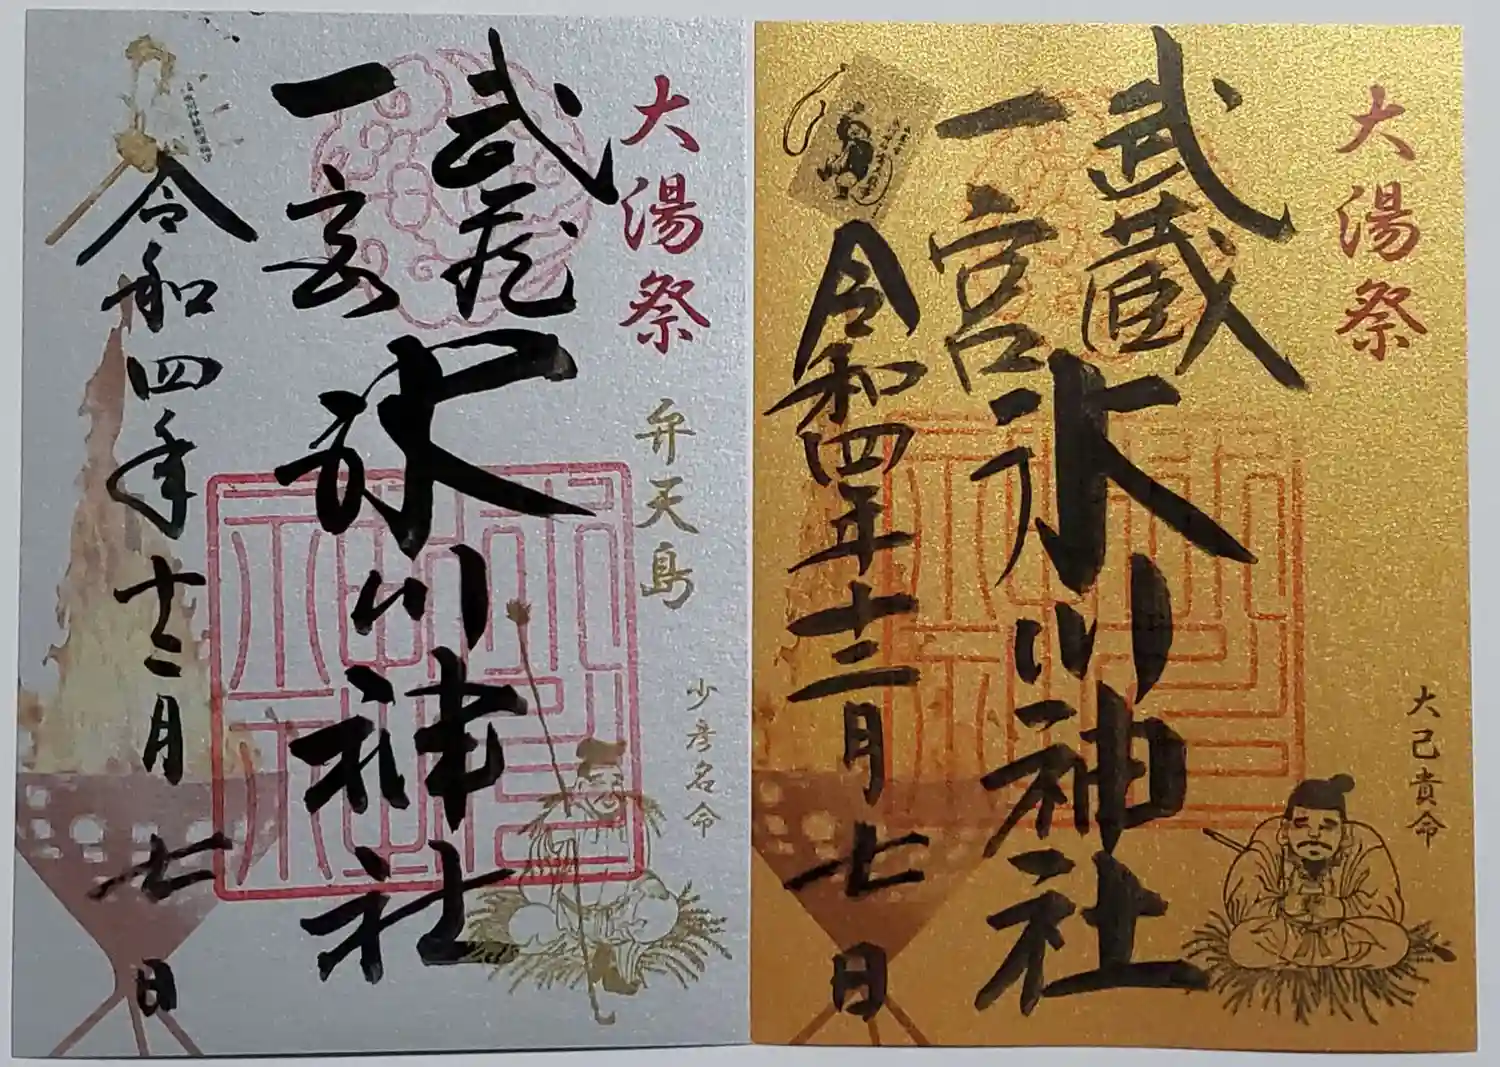 大湯祭
弁天島
少彦名命
武蔵
一宮
氷川神社
令和四年十二月七日
大湯祭
大己貴命
武蔵
一宮
氷川神社
令和四年十二月七日